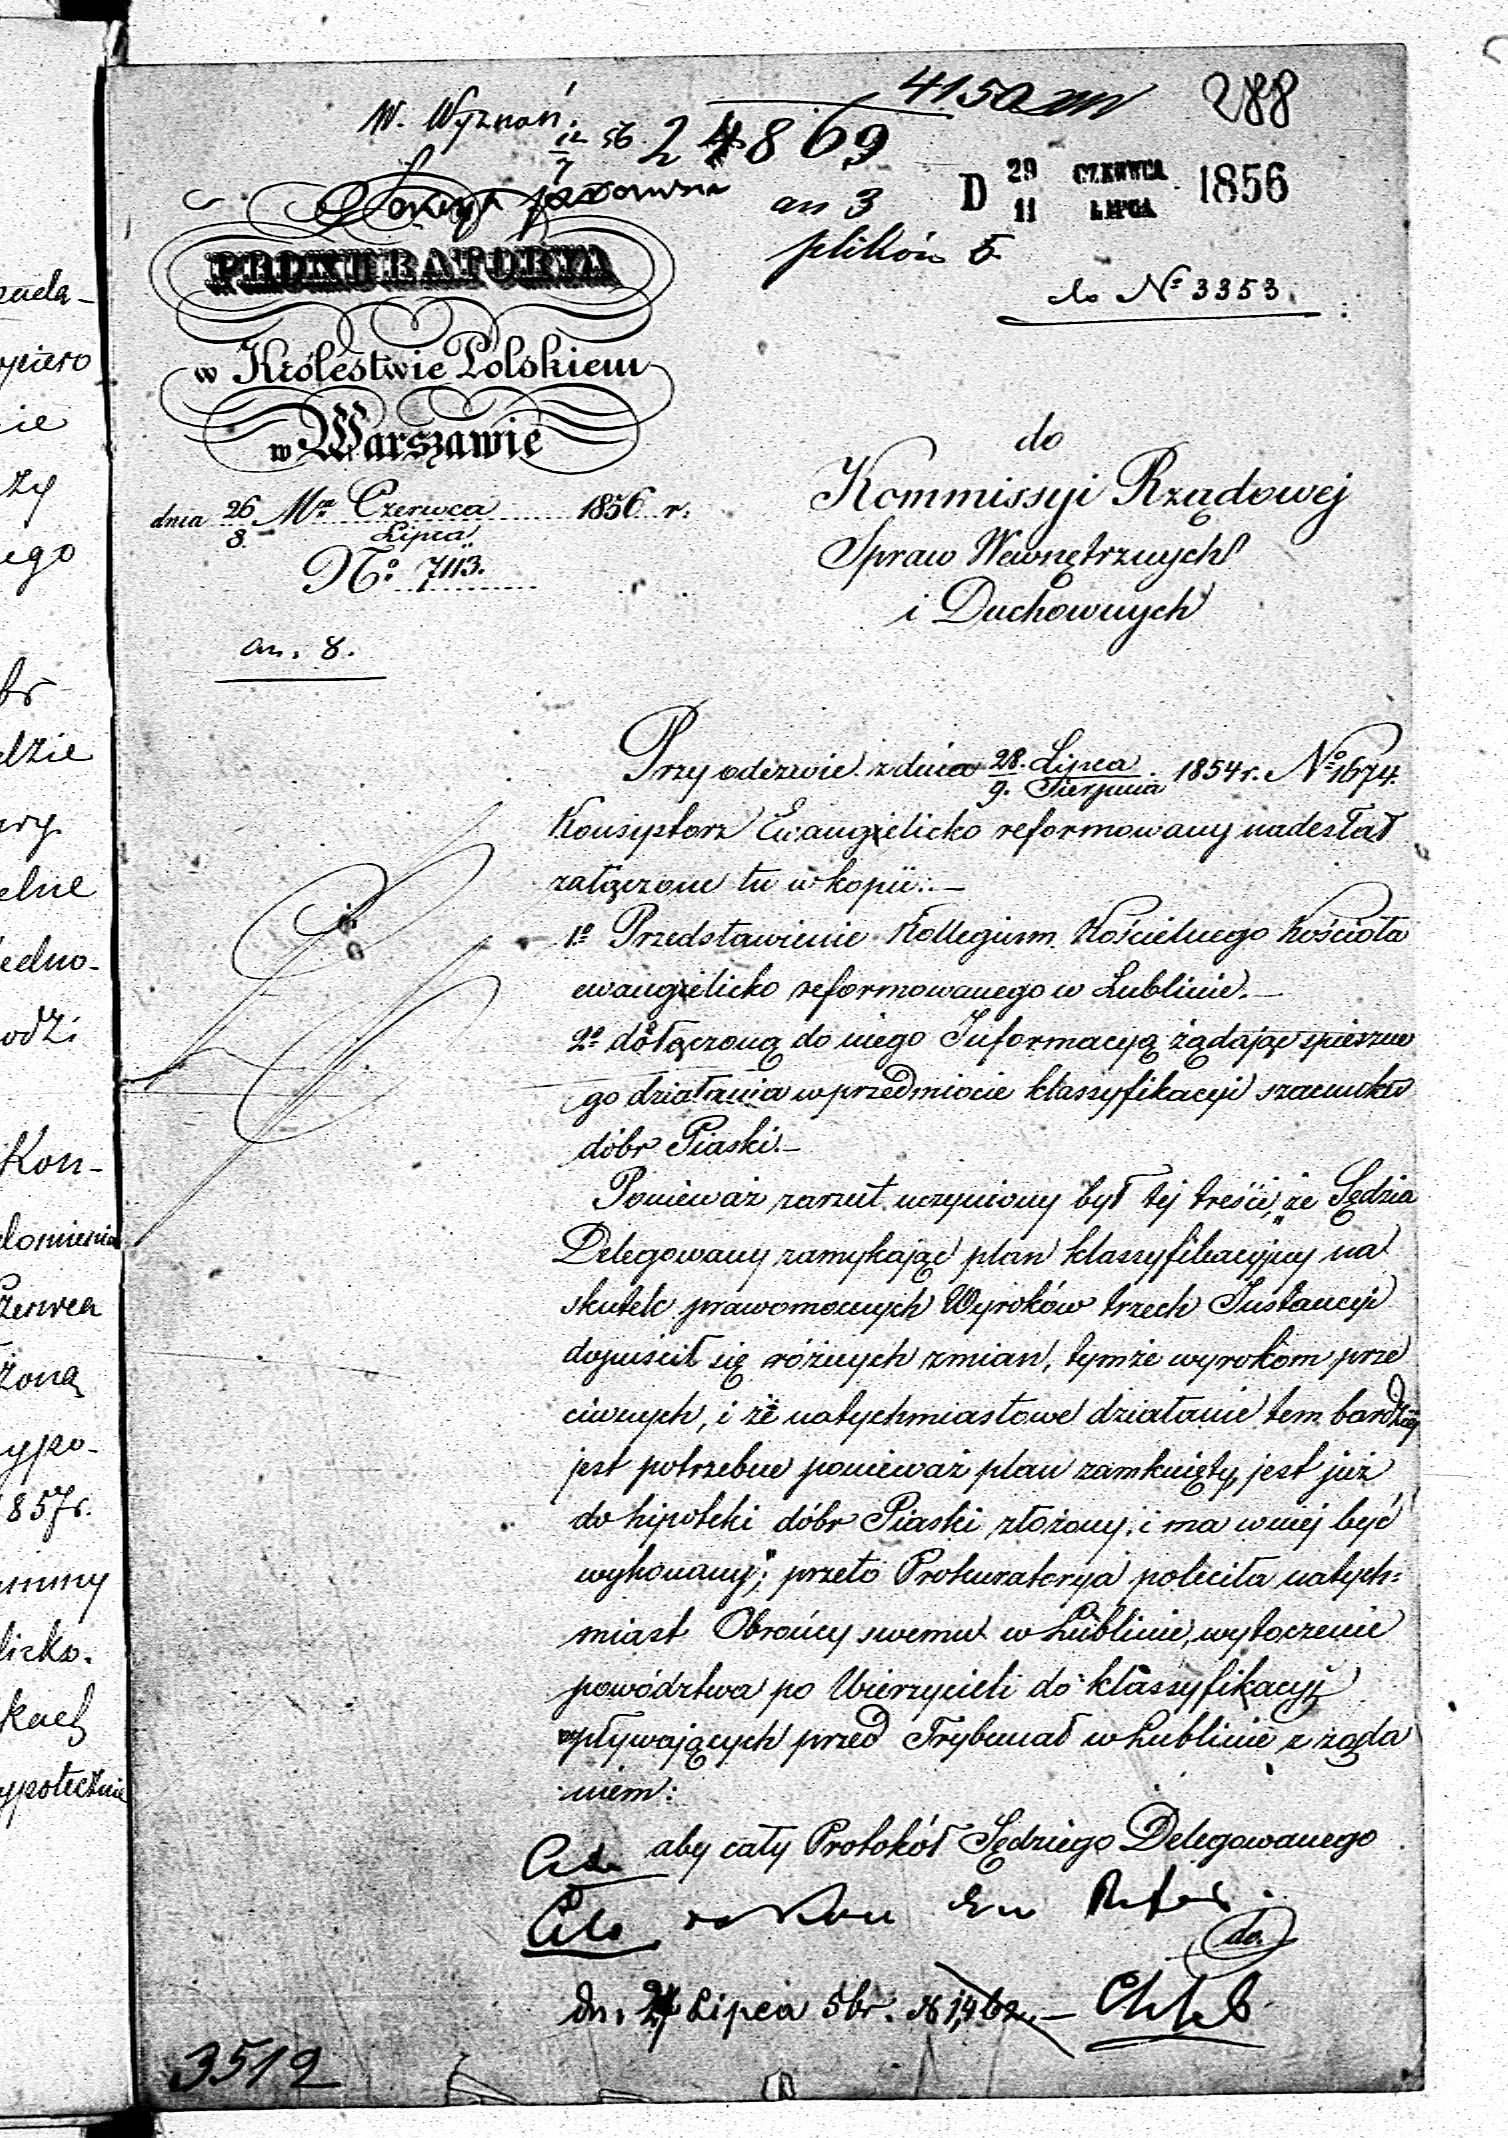 4150
288
W. Wyznań.
12/7 56
24869
an 3
plików 5.
D 29/11 CZERWCA/LIPCA 1856
do № 3353.
PROKURATORYA
w Królestwie Polskiem
w Warszawie
dnia 26/8 Mca Czerwca/Lipca 1856 r.
No. 7113.
an. 8.
do
Kommissyi Rządowej
Spraw Wewnętrznych
i Duchownych
Przy odezwie z dnia 28. Lipca/9. Sierpnia 1854 r. No 1674.
Konsystorz Ewangielicko reformowany nadesłał
załączone tu w kopii:—
1o Przedstawienie Kollegium Kościelnego Kościoła
ewangielicko reformowanego w Lublinie.—
2o dołączoną do niego Informacyą żądając spieszne
go działania w przedmiocie klassyfikacyi szacunku
dóbr Piaski.—
Ponieważ zarzut uczyniony był tej treści, "że Sędzia
Delegowany zamykając plan klassyfikacyjny na
skutek prawomocnych Wyroków trzech Instancyi
dopuścił się różnych zmian, tymże wyrokom prze
ciwnych, i że natychmiastowe działanie tem bardziej
jest potrzebne ponieważ plan zamknięty, jest już
do hipoteki dóbr Piaski złożony, i ma w niej być
wykonany"; przeto Prokuratorya poleciła natych=
miast Obrońcy swemu w Lublinie, wytoczenie
powództwa po Wierzycieli do klassyfikacyi
wpływających przed Trybunał w Lublinie z żąda
niem:
aby cały Protokół Sędziego Delegowanego
do.
dn. 24 Lipca 5br. № 1,462.—
3512
zada-
opiero
nie
ży
ego
dzie
elne
jedno-
odzi
Kon-
domienia
Czerwca
żoną
ypo-
1857 r.
gminy
licko.
kach
ypotecznie